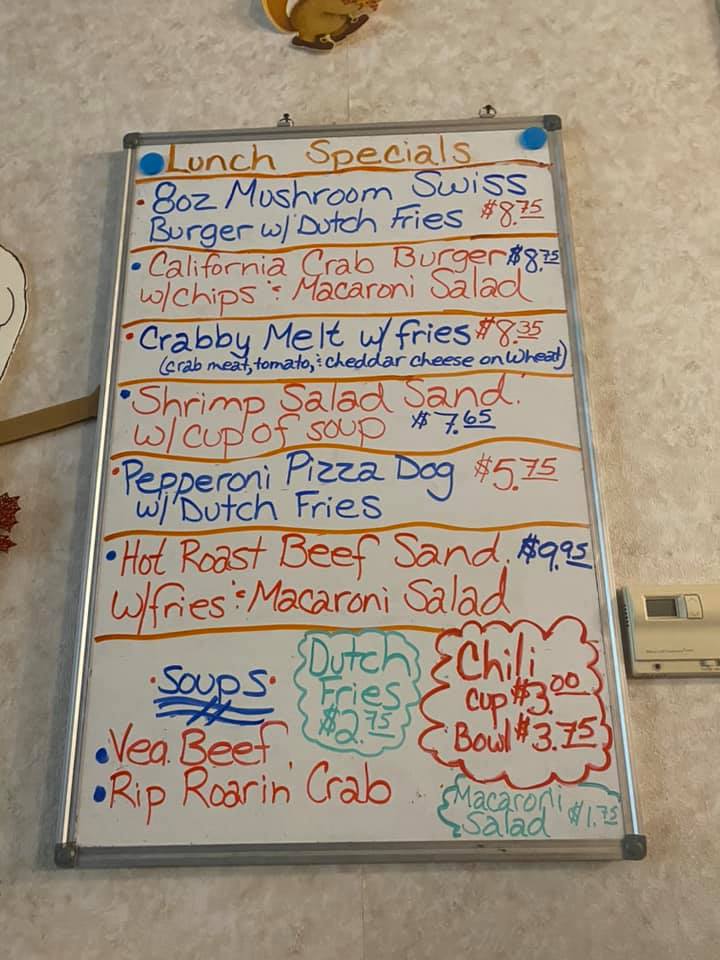 Lunch Specials
• 8oz Mushroom Swiss
Burger w/ Dutch Fries $8.75
• California Crab Burger $8.75
w/chips & Macaroni Salad
• Crabby Melt w/fries $8.35
(crab meat, tomato, & cheddar cheese on wheat)
• Shrimp Salad Sand.
w/cup of soup $7.65
• Pepperoni Pizza Dog $5.75
w/ Dutch Fries
• Hot Roast Beef Sand. $9.95
w/fries & Macaroni Salad
• Soups •
• Veg. Beef
• Rip Roarin' Crab
Dutch
Fries
$2.75
Chili
cup $3.00
Bowl $3.75
Macaroni
Salad $1.75